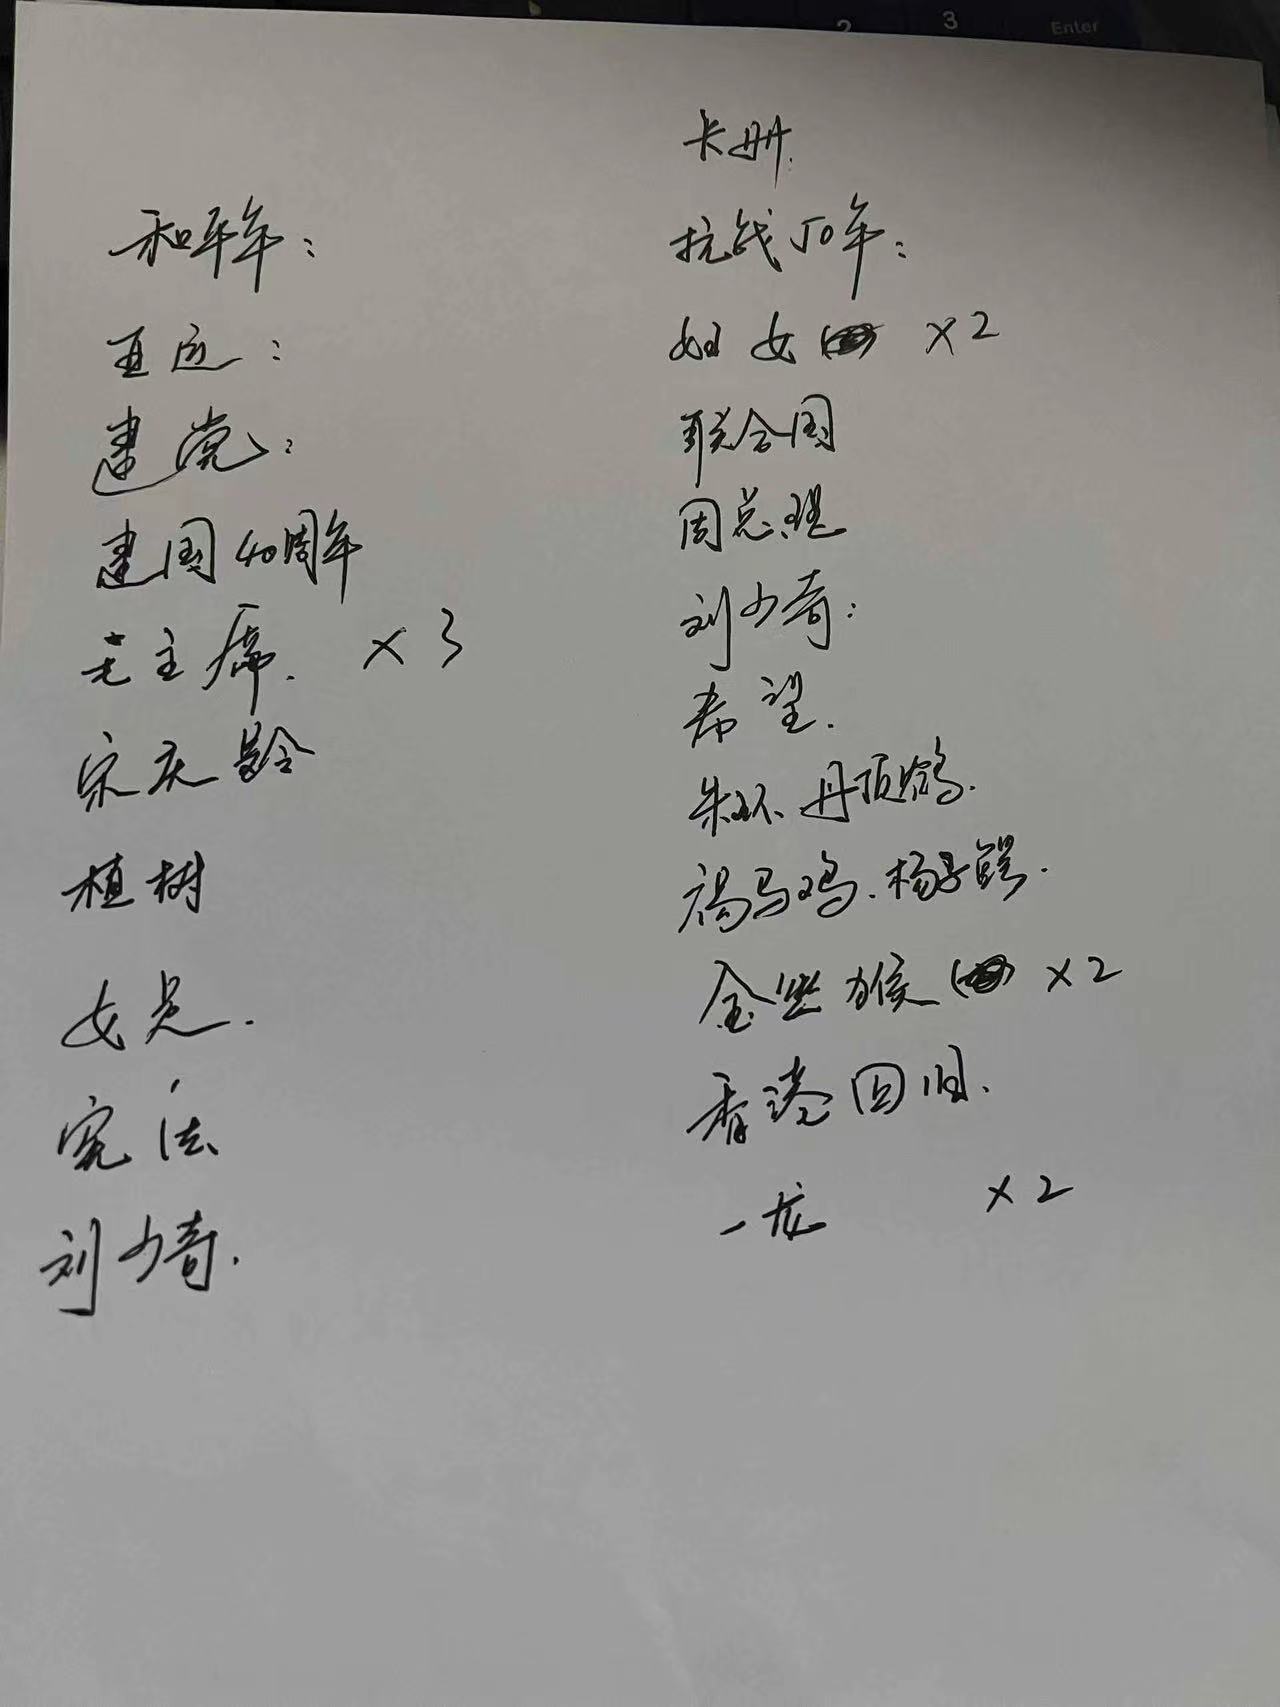 2
3
Enter
和平年：
亚运：
建党：
建国40周年
毛主席. ×3
宋庆龄
植树
女足.
宪法
刘少奇.
卡册：
抗战50年：
妇女 ×2
联合国
周总理
刘少奇：
希望.
朱环、丹顶鹤.
褐马鸡.杨子鳄.
金丝猴 ×2
香港回归.
一龙 ×2